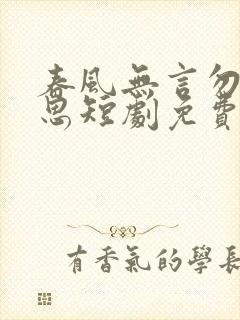 春風無言勿
思短劇免費
有香氣的學長